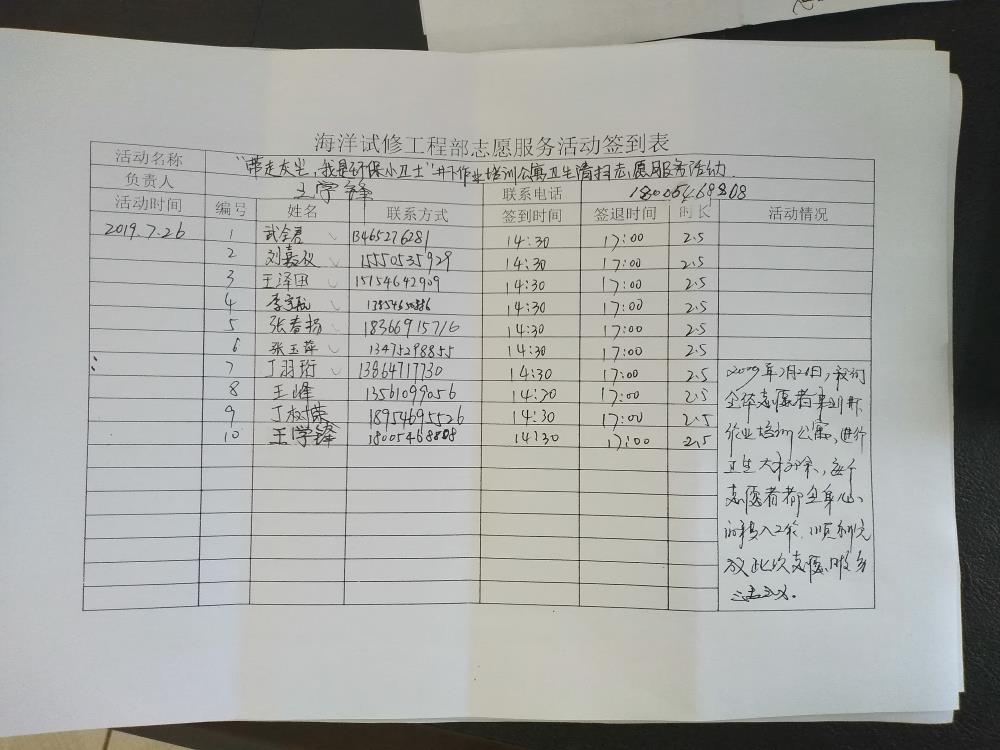 海洋试修工程部志愿服务活动签到表
活动名称 "带走灰尘,我是环保小卫士"井下作业培训公寓卫生清扫志愿服务活动
负责人 王学锋 联系电话 18005468808
活动时间 编号 姓名 联系方式 签到时间 签退时间 时长 活动情况
2019.7.26 1 武全君 13465276281 14:30 17:00 2.5
2 刘嘉仪 15550535929 14:30 17:00 2.5
3 王泽田 15154642909 14:30 17:00 2.5
4 李 14:30 17:00 2.5
5 张春扬 18366915716 14:30 17:00 2.5
6 张玉萍 13475298855 14:30 17:00 2.5
7 丁羽珩 13864717730 14:30 17:00 2.5
8 王峰 13561099056 14:30 17:00 2.5
9 丁树荣 18954695526 14:30 17:00 2.5
10 王学锋 18005468808 14:30 17:00 2.5
2019年7月26日,我们
全体志愿者来到井下
作业培训公寓,进行
卫生大扫除,每个
志愿者都全身心
的投入工作,顺利完
成此次志愿服务
活动.